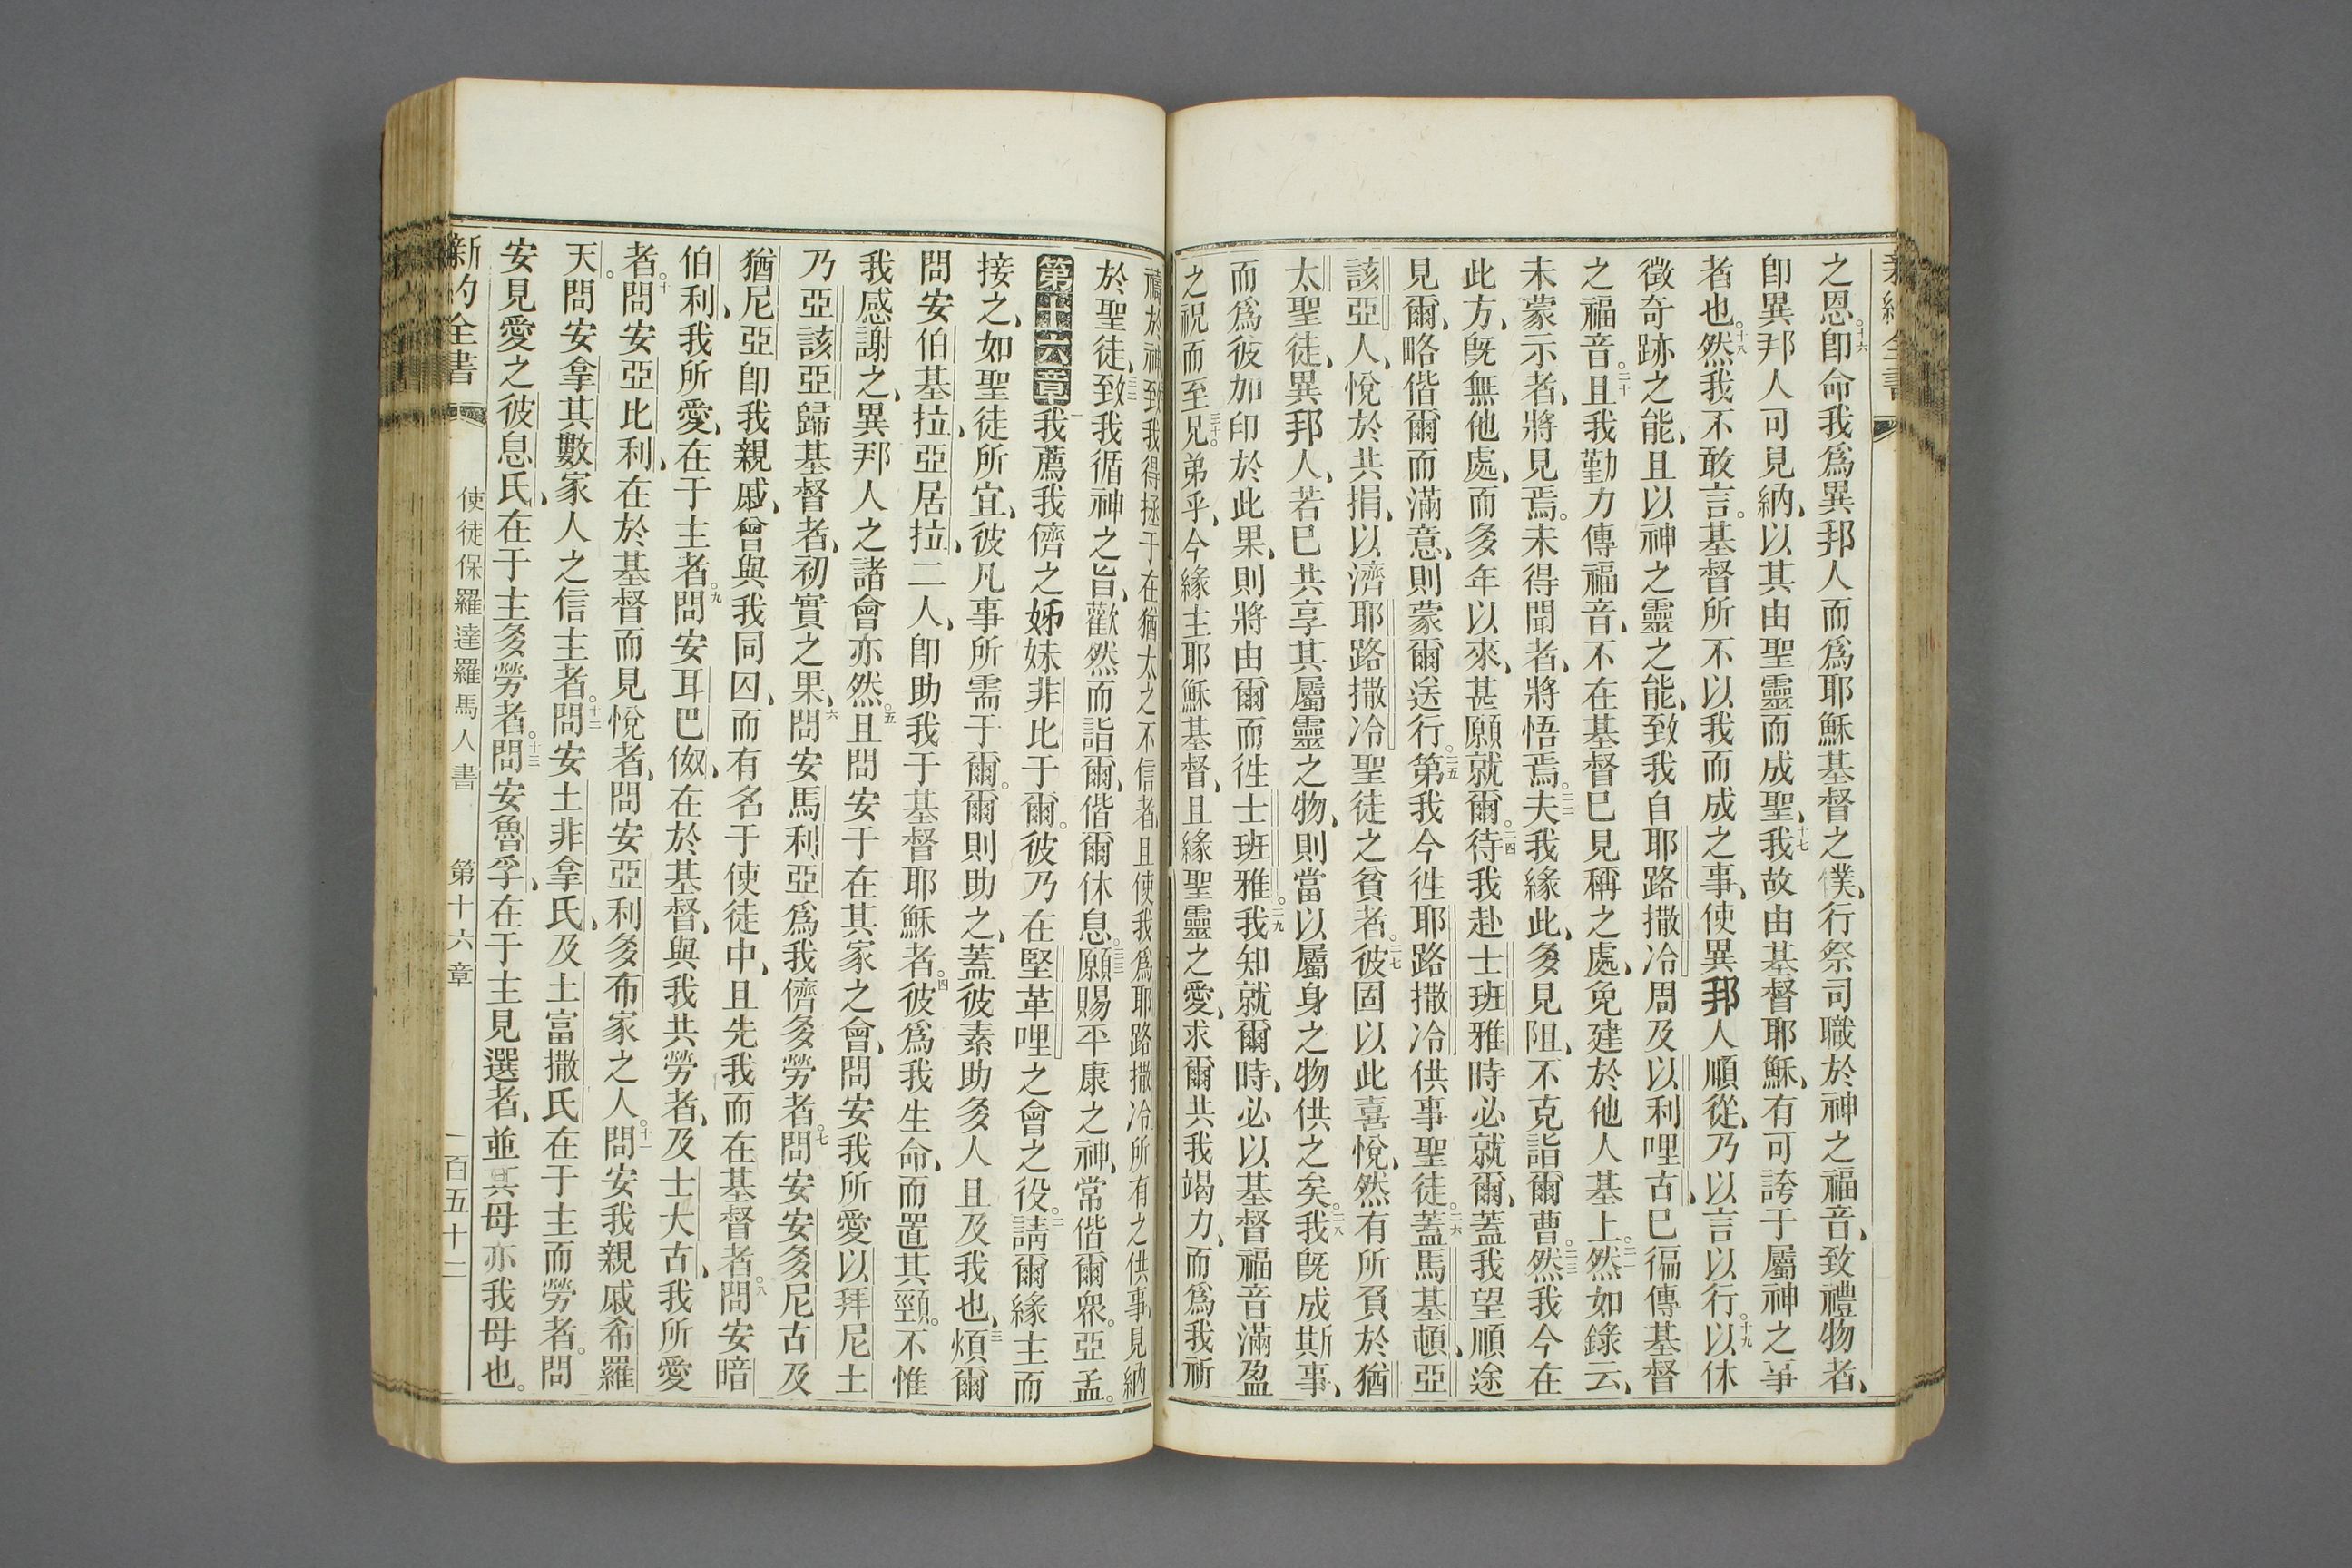 新約全書
之恩。十六卽命我爲異邦人而爲耶穌基督之僕、行祭司職於神之福音、致禮物者、
卽異邦人可見納、以其由聖靈而成聖、十七我故由基督耶穌、有可誇于屬神之事
者也。十八然我不敢言。基督所不以我而成之事、使異邦人順從、乃以言以行。十九以休
徵奇跡之能、且以神之靈之能、致我自耶路撒冷周及以利哩古、巳徧傳基督
之福音。二十且我勤力傳福音、不在基督巳見稱之處、免建於他人基上。二一然如錄云、
未蒙示者、將見焉。未得聞者、將悟焉。二二夫我緣此、多見阻、不克詣爾曹。二三然我今在
此方、旣無他處、而多年以來、甚願就爾。二四待我赴士班雅時必就爾、蓋我望順途
見爾、略偕爾而滿意、則蒙爾送行。二五第我今徃耶路撒冷供事聖徒。二六蓋馬基頓、亞
該亞人、悅於共捐、以濟耶路撒冷聖徒之貧者。二七彼固以此喜悅、然有所負於猶
太聖徒、異邦人、若巳共享其屬靈之物、則當以屬身之物供之矣。二八我旣成斯事、
而爲彼加印於此果、則將由爾而徃士班雅。二九我知就爾時、必以基督福音滿盈
之祝而至。三十兄弟乎、今緣主耶穌基督、且緣聖靈之愛、求爾共我竭力、而爲我祈
禱於神、致我得拯于在猶太之不信者、且使我爲耶路撒冷所有之供事、見納
於聖徒、三二致我循神之旨、歡然而詣爾、偕爾休息。三三願賜平康之神、常偕爾衆。亞孟。
第十六章 一我薦我儕之姊妹非比于爾。彼乃在堅革哩之會之役。二請爾緣主而
接之、如聖徒所宜、彼凡事所需于爾。爾則助之、蓋彼素助多人且及我也、三煩爾
問安伯基拉、亞居拉、二人、卽助我于基督耶穌者。四彼爲我生命、而置其頸。不惟
我感謝之、異邦人之諸會亦然。五且問安于在其家之會、問安我所愛以拜尼土
乃亞該亞歸基督者、初實之果、六問安馬利亞爲我儕多勞者。七問安安多尼古及
猶尼亞卽我親戚、曾與我同囚、而有名于使徒中、且先我而在基督者。八問安暗
伯利、我所愛、在于主者。九問安耳巴伮、在於基督、與我共勞者、及士大古、我所愛
者。十問安亞比利、在於基督而見悅者、問安亞利多布家之人。十一問安我親戚希羅
天。問安拿其數家人之信主者。十二問安土非拿氏、及土富撒氏在于主而勞者。問
安見愛之彼息氏、在于主多勞者。十三問安魯孚、在于主見選者、並其母亦我母也。
新約全書 使徒保羅達羅馬人書 第十六章 一百五十二